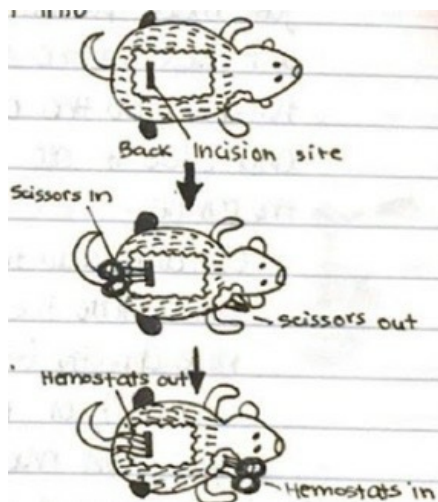 Back Incision site
Scissors in
scissors out
Hemostats out
Hemostats in